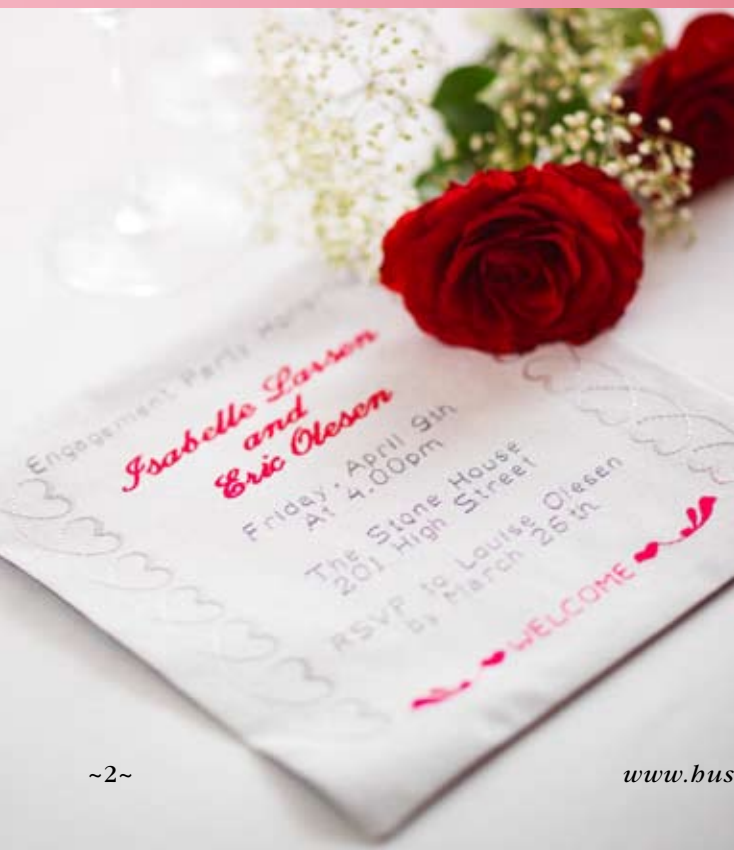 Engagement Party
Isabelle Larsen
and
Eric Olesen
Friday, April 9th
At 4.00pm
The Stone House
201 High Street
RSVP to Louise Olesen
by March 26th
WELCOME
~2~
www.hus